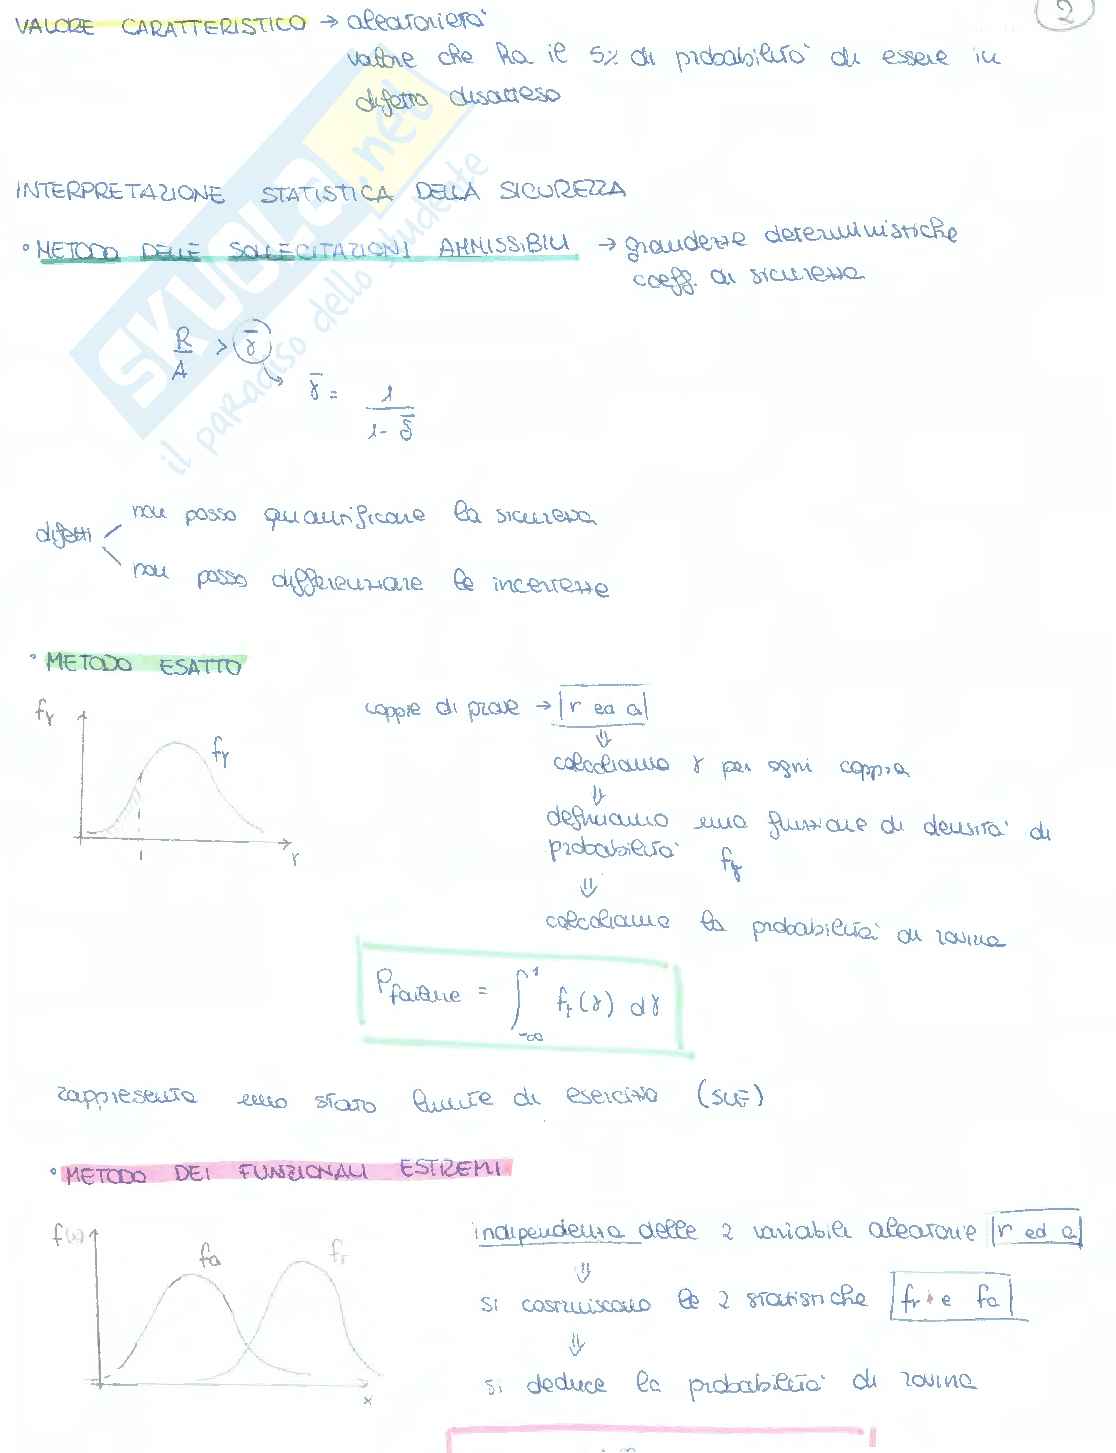 2
VALORE CARATTERISTICO → aleatorietà
valore che ha il 5% di probabilità di essere in
difetto disatteso
INTERPRETAZIONE STATISTICA DELLA SICUREZZA
• METODO DELLE SOLLECITAZIONI AMMISSIBILI → grandezze deterministiche
coeff. di sicurezza
R/A > γ̄
γ̄ = 1/(1-δ̄)
difetti
non posso quantificare la sicurezza
non posso differenziare le incertezze
• METODO ESATTO
fγ
fγ
1
γ
coppie di prove → r ed a
⇓
calcoliamo γ per ogni coppia
⇓
definiamo una funzione di densità di
probabilità fγ
⇓
calcoliamo la probabilità di rovina
Pfailure = ∫_{-∞}^{1} fγ(γ) dγ
rappresenta uno stato limite di esercizio (SLE)
• METODO DEI FUNZIONALI ESTREMI
f(x)
fa
fr
x
indipendenza delle 2 variabili aleatorie r ed a
⇓
si costruiscono le 2 statistiche fr e fa
⇓
si deduce la probabilità di rovina
SKUOLA.net
il paradiso dello studente